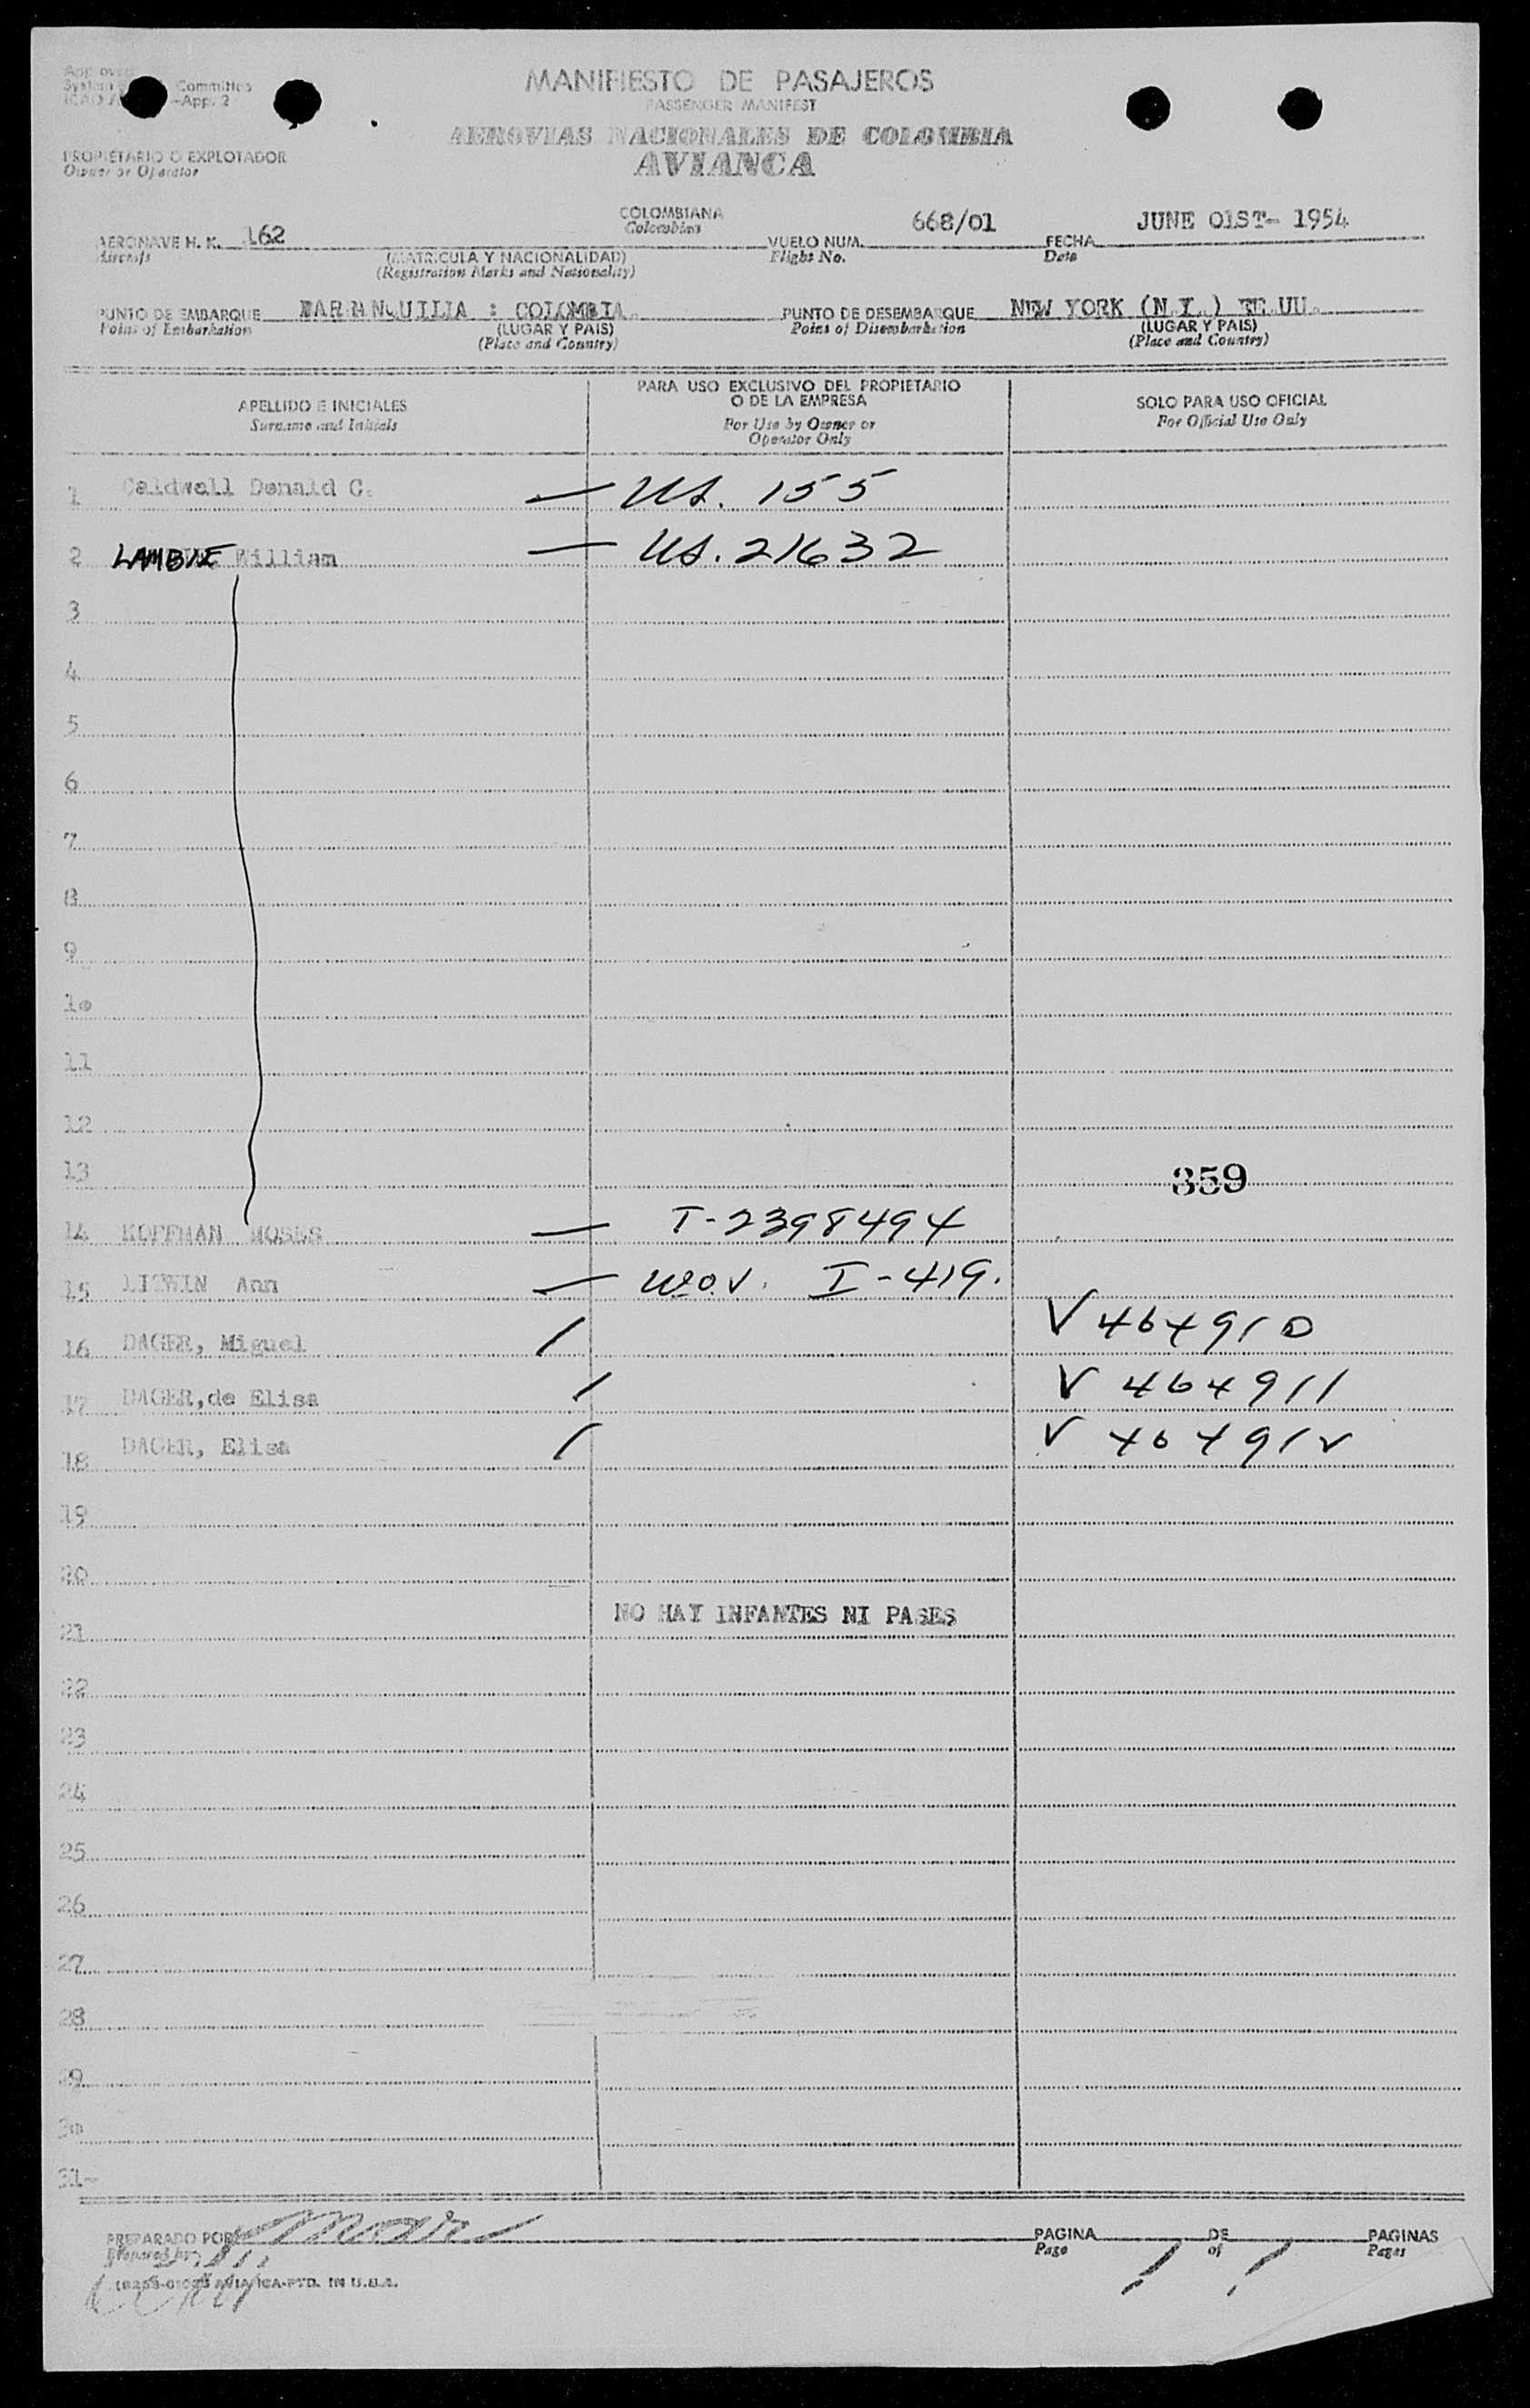 Committee
-App. 2
MANIFIESTO DE PASAJEROS
PASSENGER MANIFEST
AEROVIAS NACIONALES DE COLOMBIA
AVIANCA
PROPIETARIO O EXPLOTADOR
Owner or Operator
AERONAVE H. K. 162 COLOMBIANA VUELO NUM. 668/01 FECHA JUNE 01ST- 1954
Aircraft Colombian Flight No. Date
(MATRICULA Y NACIONALIDAD)
(Registration Marks and Nationality)
PUNTO DE EMBARQUE BARRANQUILLA : COLOMBIA. PUNTO DE DESEMBARQUE NEW YORK (N.Y.) EE.UU.
Point of Embarkation (LUGAR Y PAIS) Point of Disembarkation (LUGAR Y PAIS)
(Place and Country) (Place and Country)
APELLIDO E INICIALES PARA USO EXCLUSIVO DEL PROPIETARIO O DE LA EMPRESA SOLO PARA USO OFICIAL
Surname and Initials For Use by Owner or Operator Only For Official Use Only
1 Caldwell Donald G. — US. 155
2 LAMBIE William — US. 21632
3
4
5
6
7
8
9
10
11
12
13 359
14 KOFFMAN MOSES — T-2398494
15 LITWIN Ann — I-419.
16 DAGER, Miguel / V 464910
17 DAGER,de Elisa / V 464911
18 DAGER, Elisa / V 464912
19
20
21 NO HAY INFANTES NI PASES
22
23
24
25
26
27
28
29
30
31-
PREPARADO POR PAGINA 1 DE 1 PAGINAS
Prepared by Page of Pages
AVIANCA-PTD. IN U.S.A.